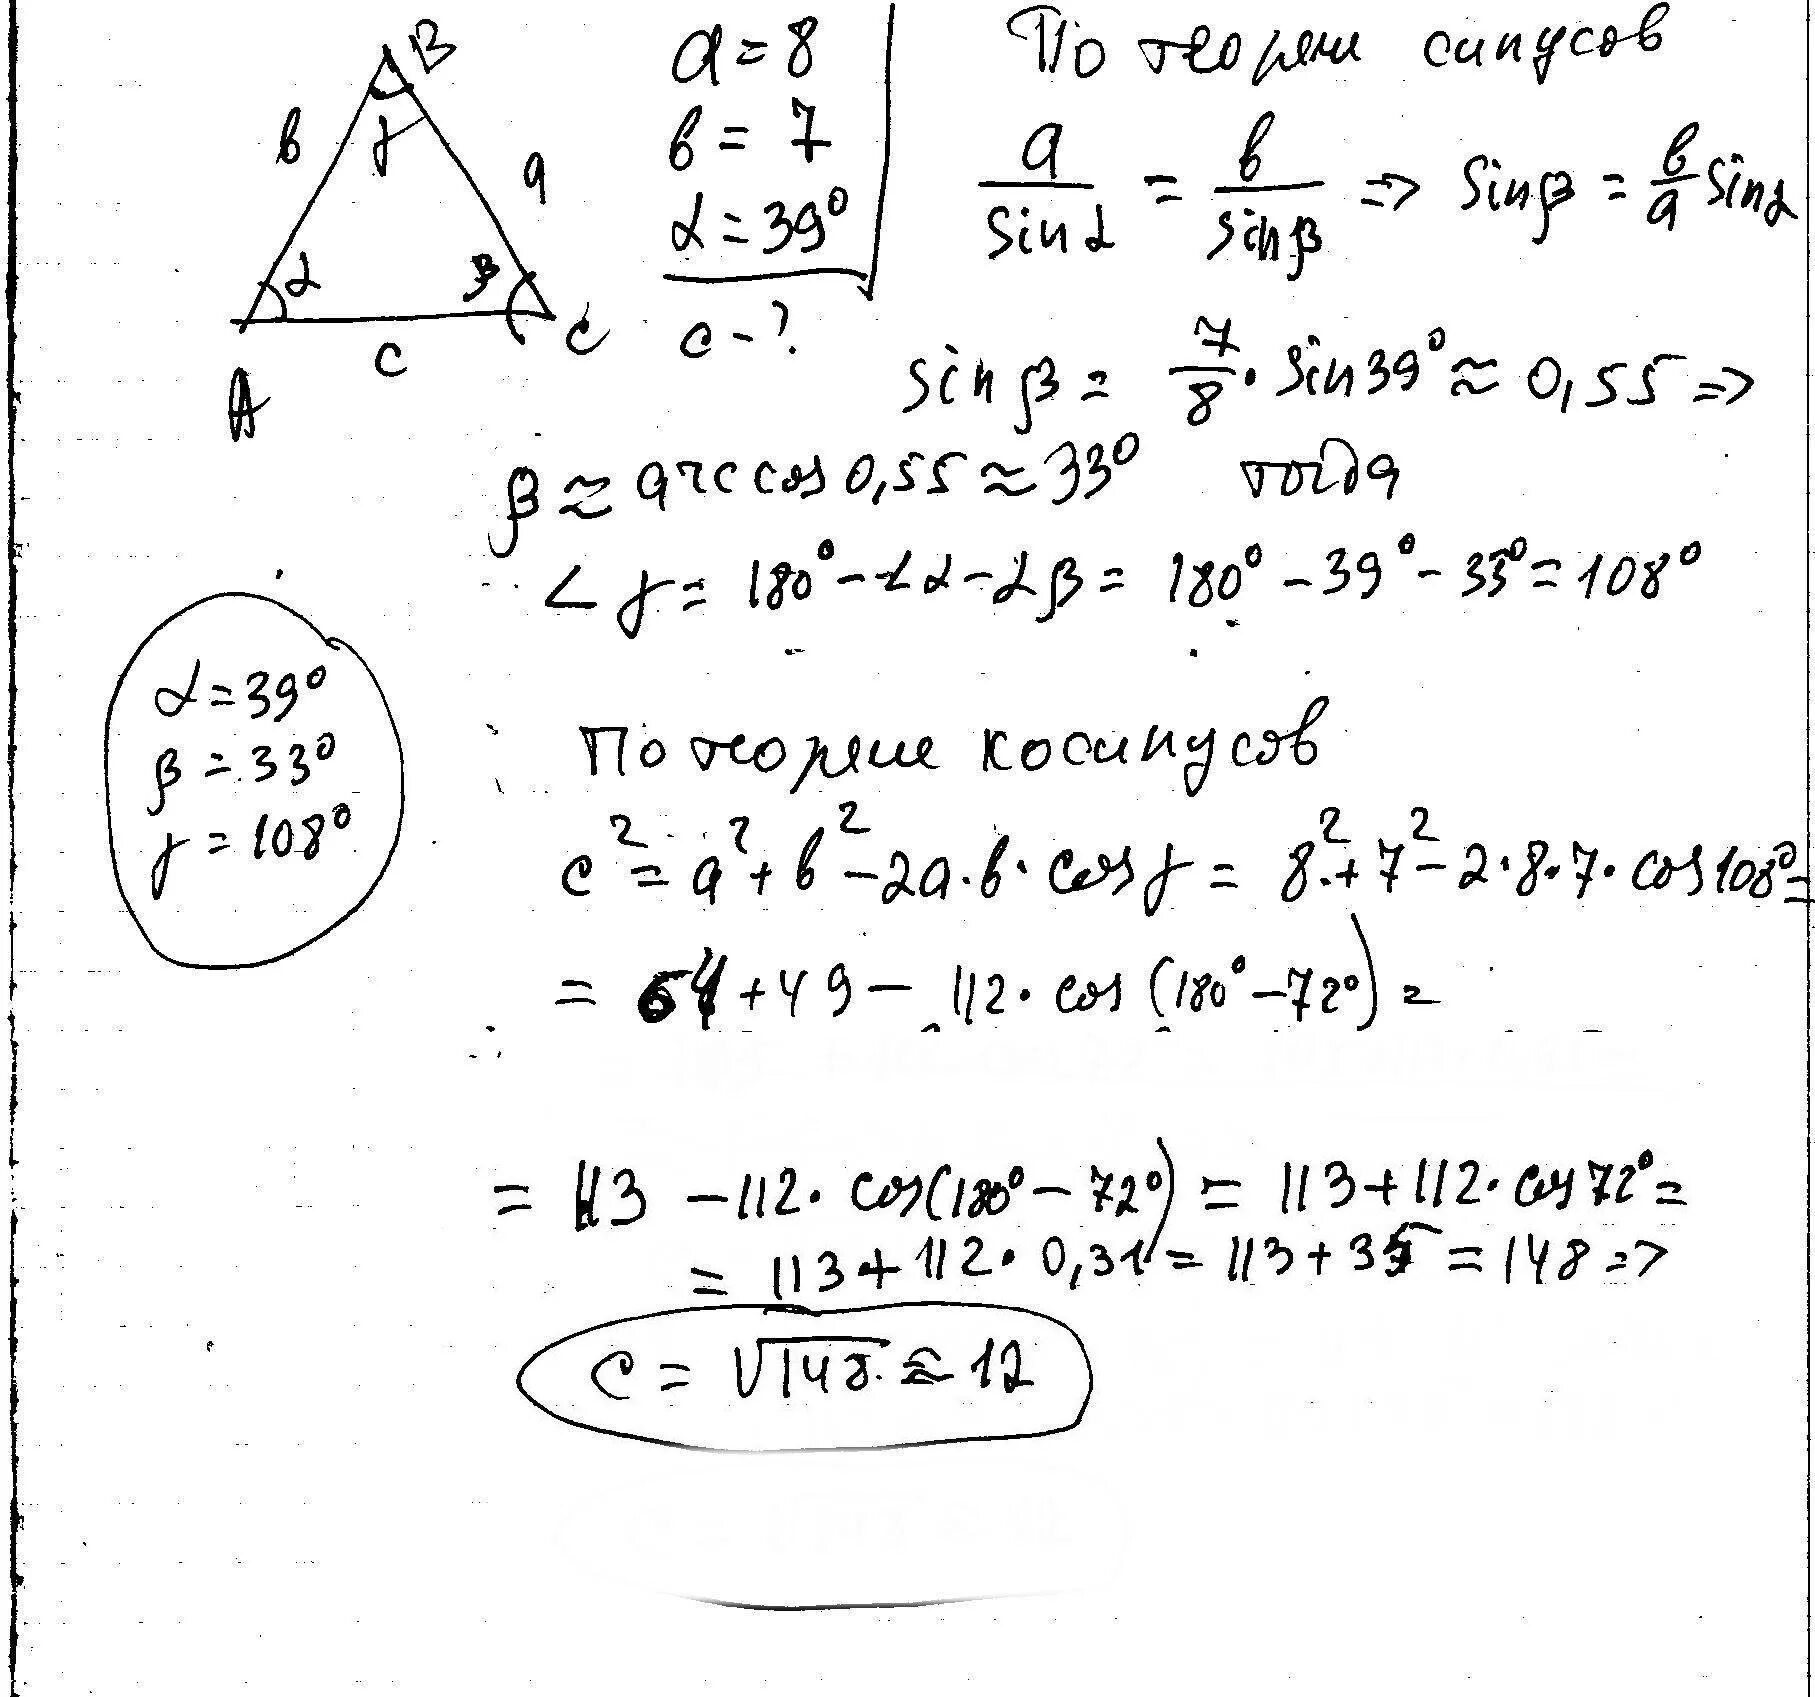 B
в
γ
a
α
β
A
c
C
a = 8
в = 7
α = 39°
c - ?
По теореме синусов
a/sinα = в/sinβ => sinβ = в/a sinα
sinβ = 7/8 · sin39° ≈ 0,55 =>
β ≈ arccos 0,55 ≈ 33° тогда
∠γ = 180° - ∠α - ∠β = 180° - 39° - 33° = 108°
α = 39°
β = 33°
γ = 108°
По теореме косинусов
c² = a² + в² - 2a·в·cosγ = 8² + 7² - 2·8·7·cos108° =
= 64 + 49 - 112·cos(180° - 72°) =
= 113 - 112·cos(180° - 72°) = 113 + 112·cos72° =
= 113 + 112·0,31 = 113 + 35 = 148 =>
c = √148 ≈ 12